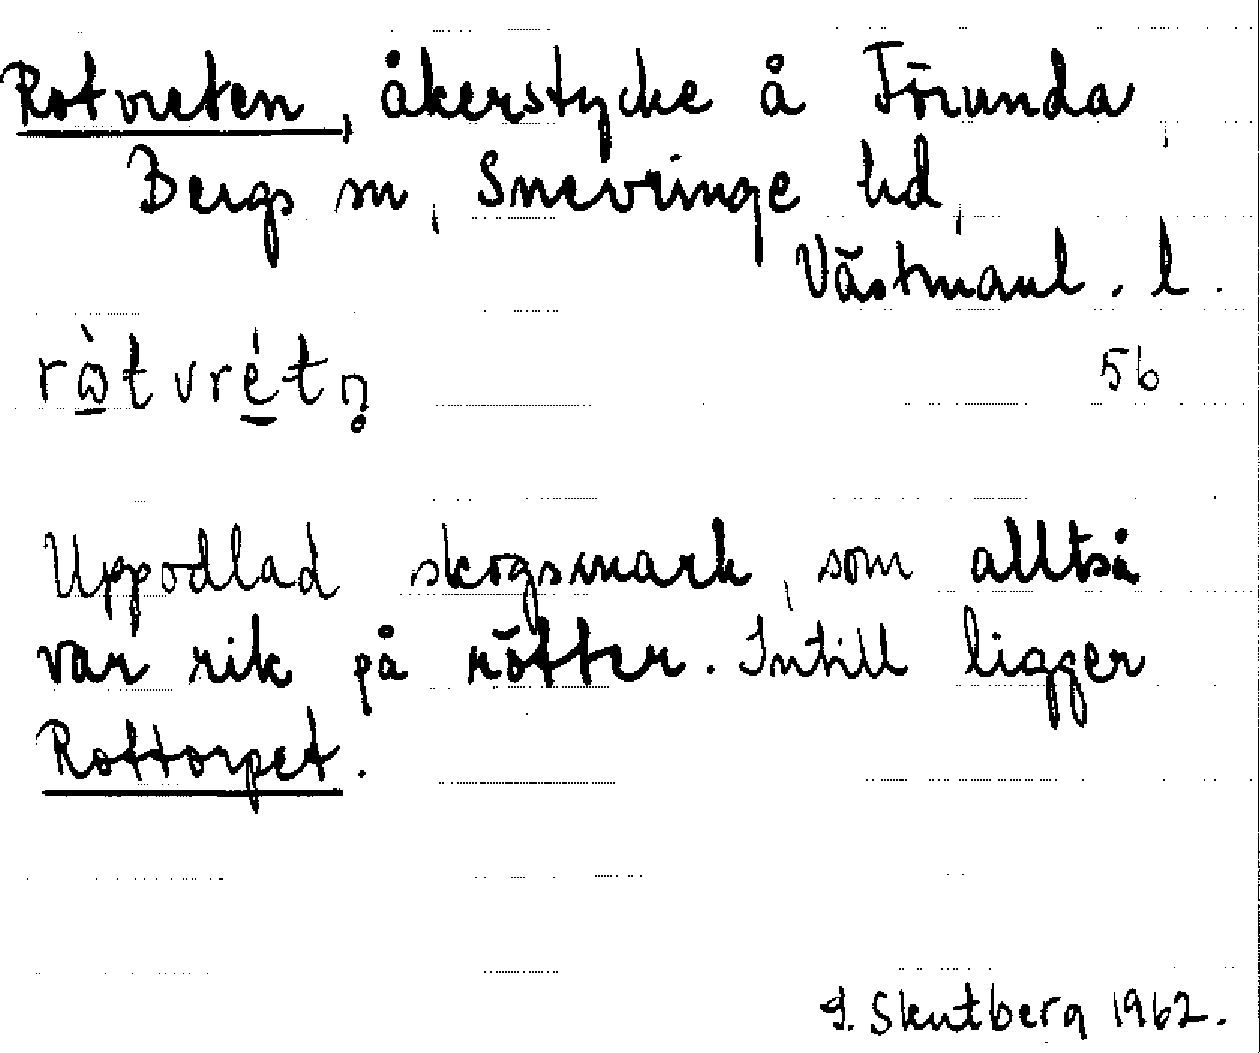 Rotvreten, åkerstycke å Förunda,
Bergs sn, Snevringe hd,
Västmanl. l.
ròtvrétn̥ 56
Uppodlad skogsmark, som alltså
var rik på rötter. Intill ligger
Rottorpet.
I. Skutberg 1962.